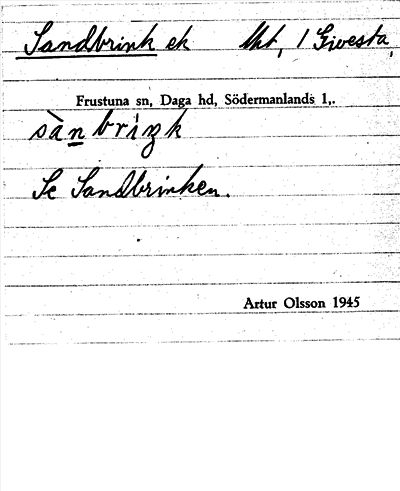 Sandbrink ek Utt, 1 Givesta,
Frustuna sn, Daga hd, Södermanlands l,.
sànbriŋk
Se Sandbrinken.
Artur Olsson 1945